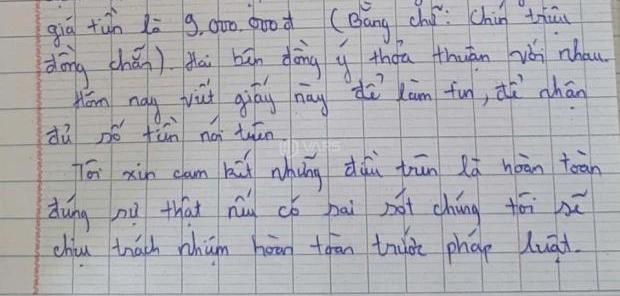 giá tiền là 9.000.000đ (Bằng chữ: Chín triệu
đồng chẵn). Hai bên đồng ý thỏa thuận với nhau.
Hôm nay viết giấy này để làm tin, đã nhận
đủ số tiền nói trên.
Tôi xin cam kết những điều trên là hoàn toàn
đúng sự thật nếu có sai sót chúng tôi sẽ
chịu trách nhiệm hoàn toàn trước pháp luật.